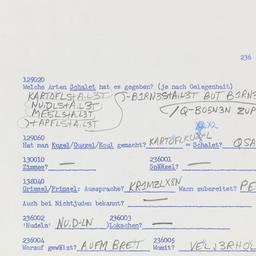 236
129020
Welche Arten Schalet hat es gegeben? (je nach Gelegenheit)
KARTOFLSHA.L3T J-B1RN3SHAiL3T BUT B1RN3
NU.DLSHA.L3T
MEELSHA.L3T /Q-BO5N3N ZUP
+APFLSHA.L3T
129060
Hat man Kugel/Guggel/Koul gemacht? KARTOFLKU = Schalet? QSA
130010 236001
Zimmes? — Spätzel? —
138040
Grimsel/Frimsel: Aussprache? KR1MZLX8N Wann zubereitet? PE
Auch bei Nichtjuden bekannt? —
236002 236003
'Nudeln' NU.D-LN )Lokschen? —
236004 236005
Worauf gewälzt? AUFM BRET Womit? VEL3RHOL